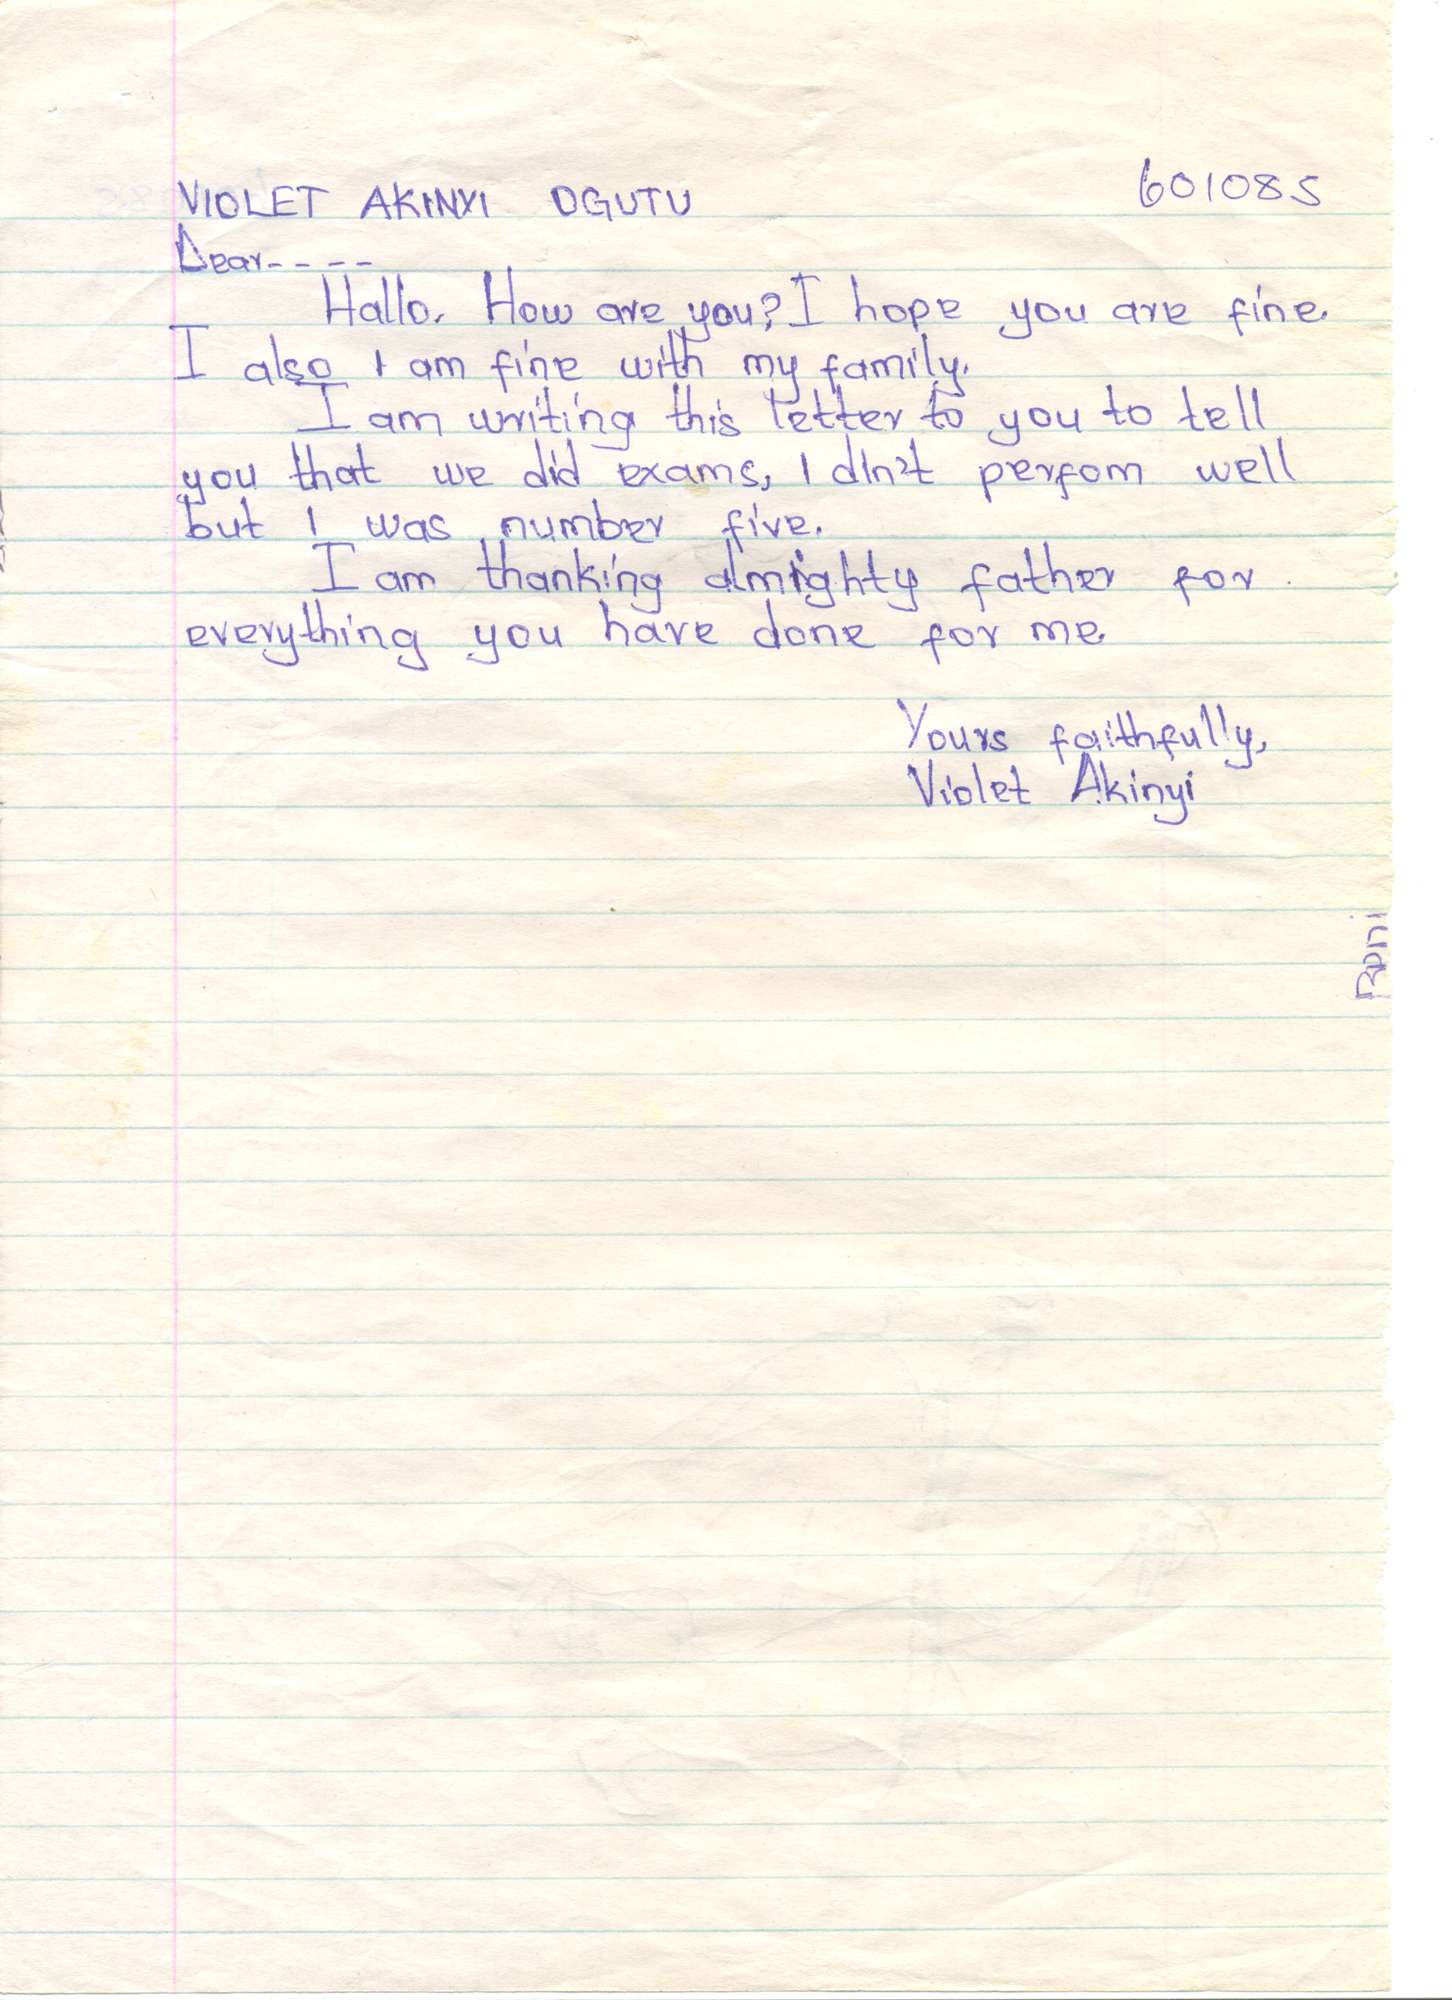 VIOLET AKINYI OGUTU 601085
Dear----
Hallo. How are you? I hope you are fine.
I also I am fine with my family.
I am writing this letter to you to tell
you that we did exams, I dIn't perfom well
but I was number five.
I am thanking almighty father for
everything you have done for me.
Yours faithfully,
Violet Akinyi